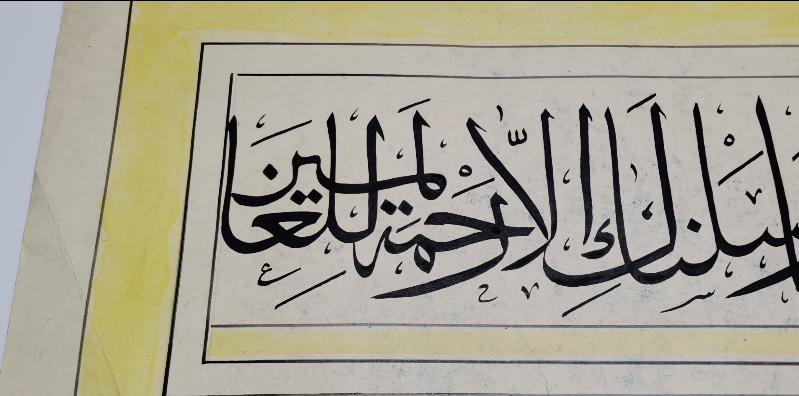 سلناك إلا رحمة للعالمين